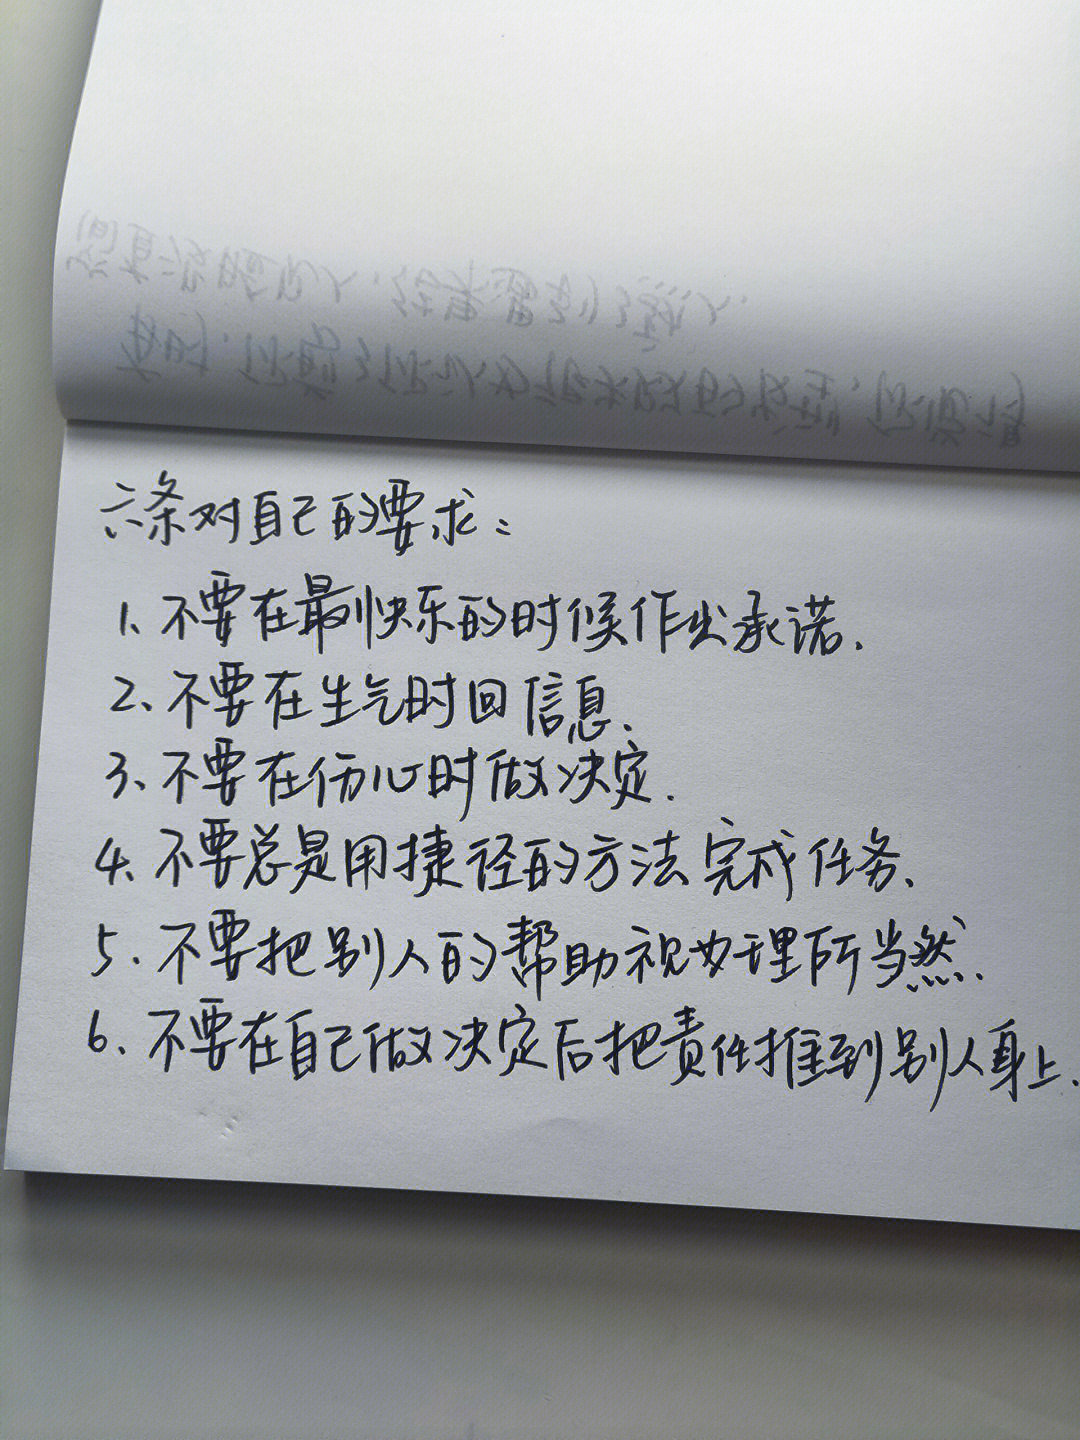 六条对自己的要求：
1、不要在最快乐的时候作出承诺.
2、不要在生气时回信息.
3、不要在伤心时做决定.
4、不要总是用捷径的方法完成任务、
5、不要把别人的帮助视如理所当然.
6、不要在自己做决定后把责任推到别人身上.